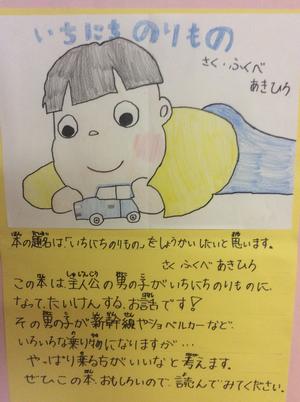 いちにち のりもの
さく・ふくべ
あきひろ
本の題名は「いちにちのりもの」をしょうかいしたいと思います。
さく ふくべ あきひろ
この本は、主人公の男の子がいちにちのりものに、
なって、たいけんする、お話です!
その男の子が新幹線やショベルカーなど、
いろいろな乗り物になりますが…
やっぱり乗る方がいいなと考えます。
ぜひこの本、おもしろいので、読んでみてください。